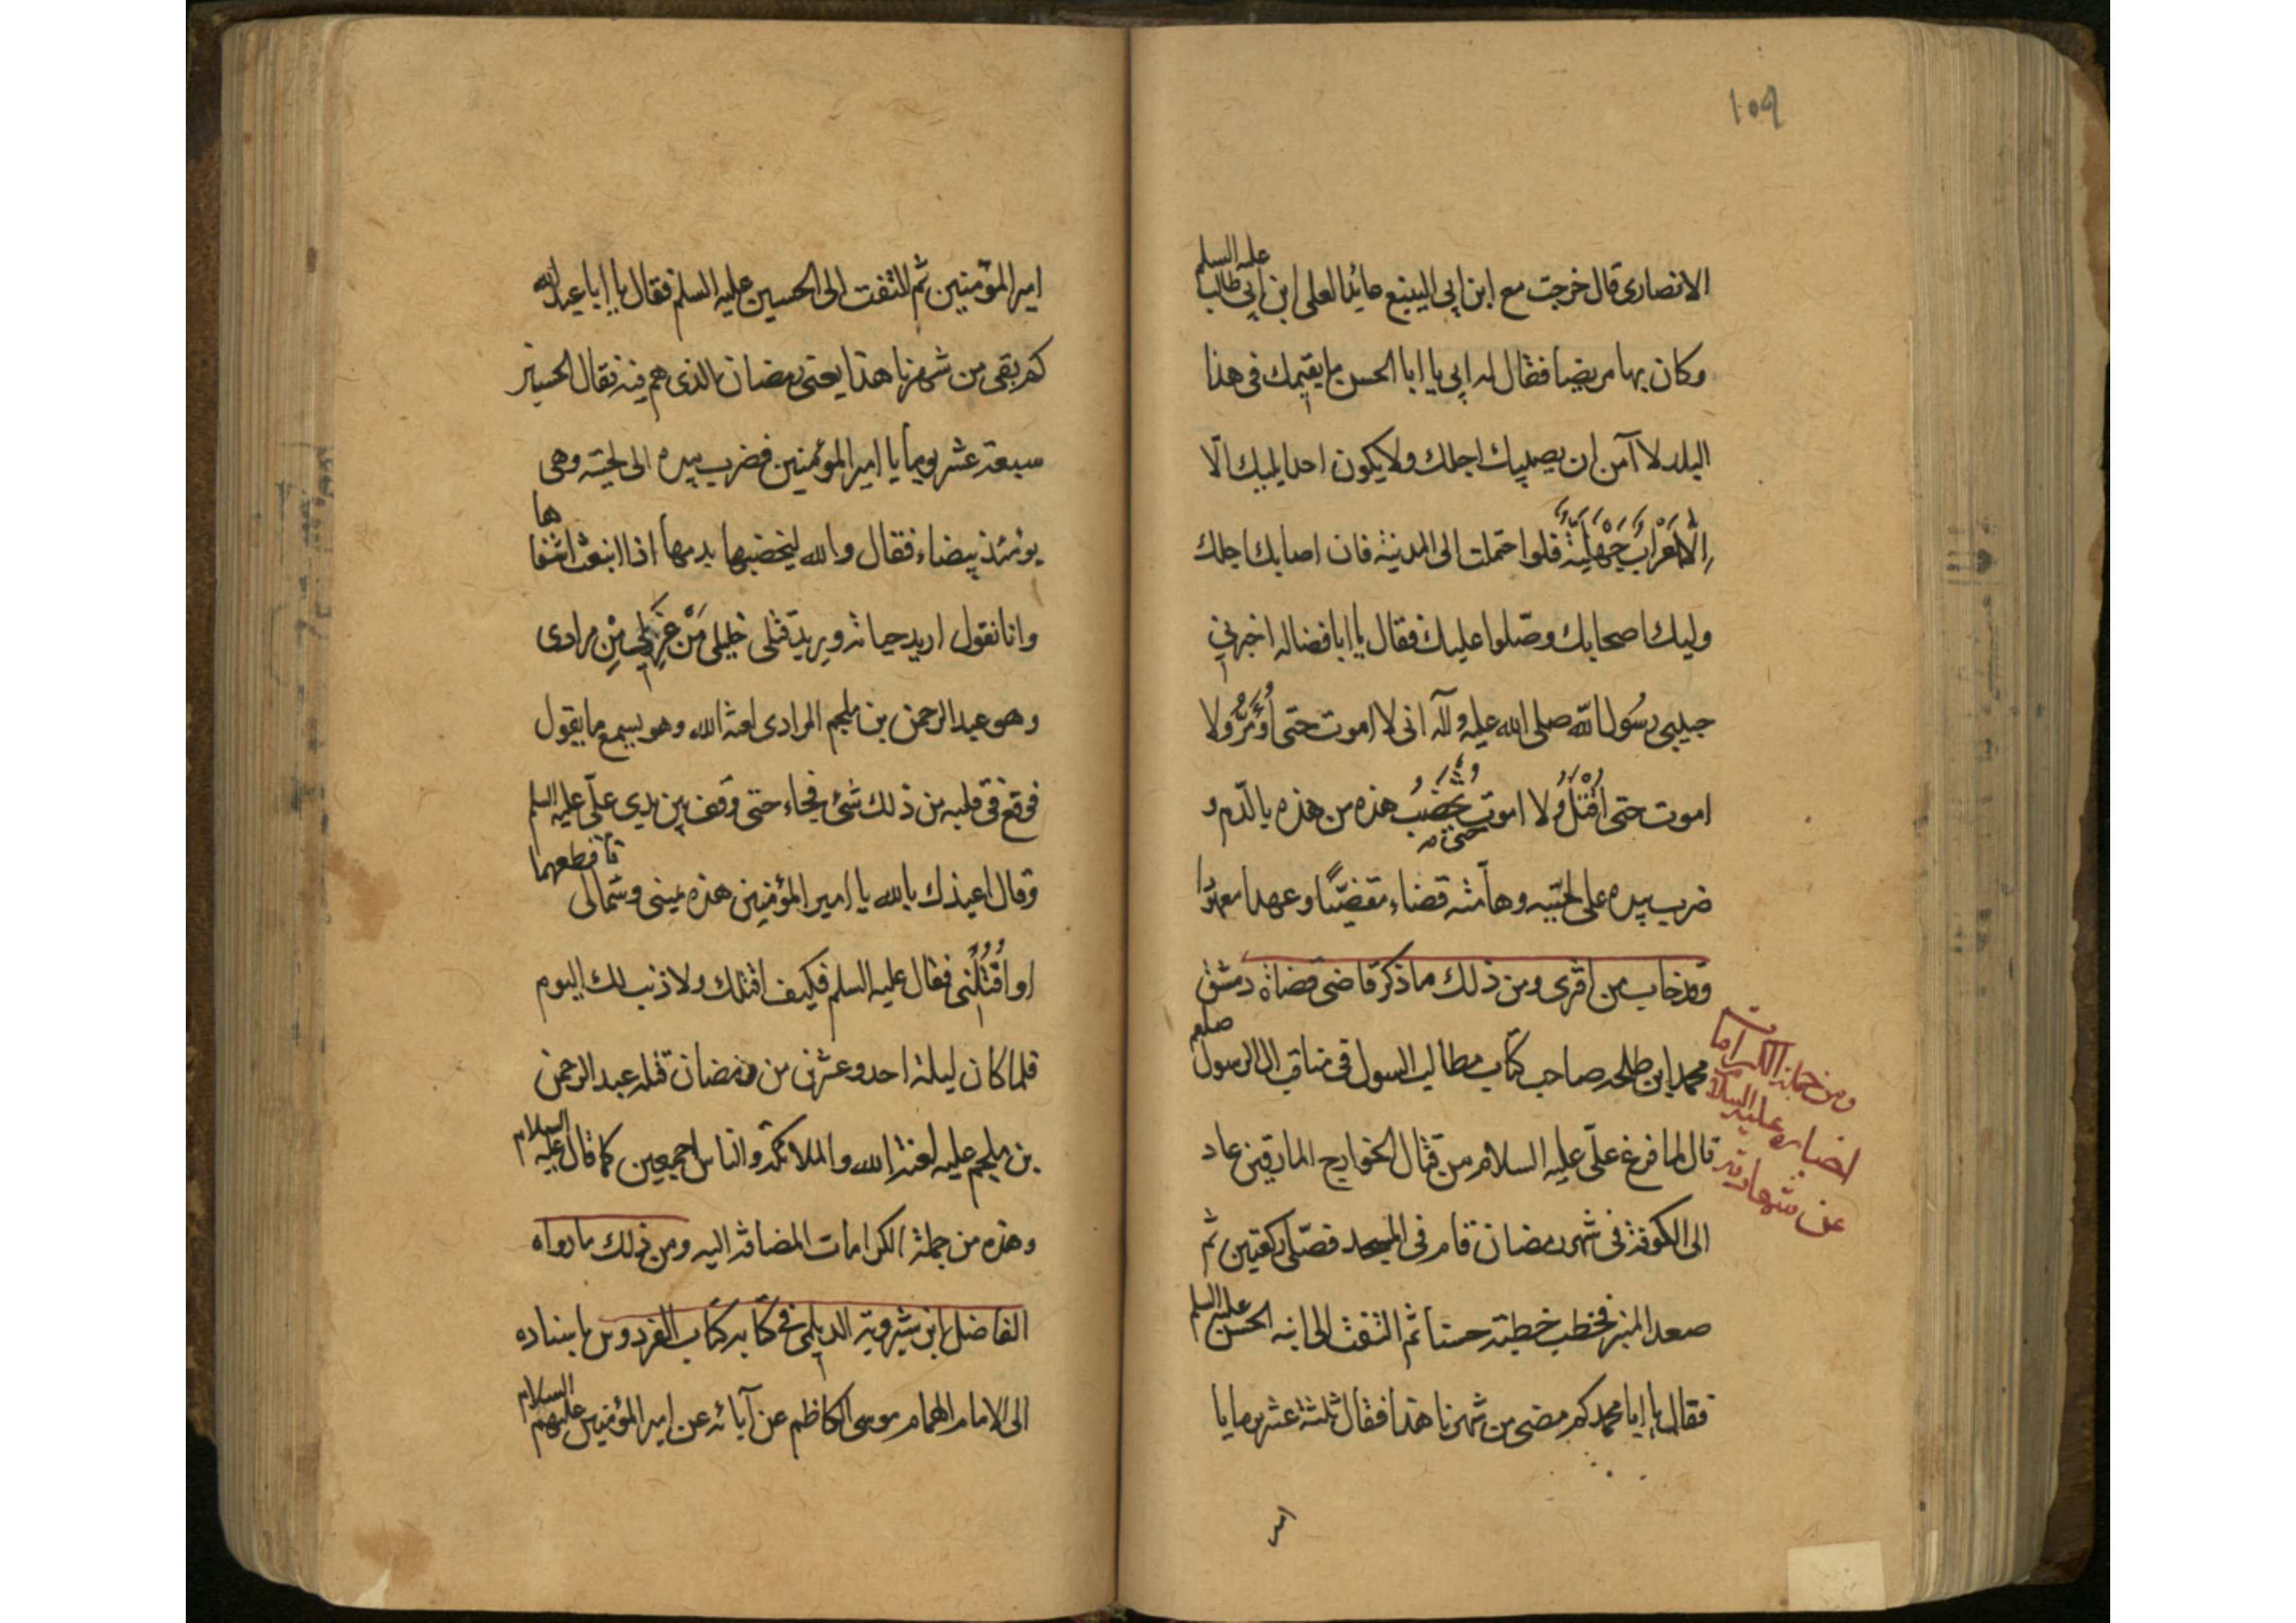 ١٠٩
الانصاری قال خرجت مع ابن ابی الینبع عائدا لعلی ابن ابی طالب علیه السلم
وکان بها مریضا فقال له ابی یا ابا الحسن ما یقیمك فی هذا
البلد لا آمن ان یصیبك اجلك ولا یکون احد یلیك الّا
اِلّا اَعْرابُ جُهَیْنَةَ فلو احتملت الی المدینة فان اصابك اجلك
ولیك اصحابك وصّلوا علیك فقال یا ابا فضاله اخبرنی
حبیبی رسُول الله صلی الله علیه وآله انی لا اموت حتی اُؤَمَّرُ ولا
اموت حتی اُقْتَلُ ولا اموت حتی تُخْضَبُ هذه من هذه بالدّم و
ضرب بیده علی لحیته وهامته قضاء مقضیّاً وعهدا معهودا
وقد خاب من افتری ومن ذلك ما ذکر قاضی قضاة دمشق
محمد ابن طلحه صاحب کتاب مطالب السول فی مناقب ال الرسول صلعم
قال لما فرغ علّی علیه السلام من قتال الخوارج المارقین عاد
الی الکوفة فی شهر رمضان قام فی المسجد فصّلی رکعتین ثم
صعد المنبر فخطب خطبة حسنا ثم التفت الی ابنه الحسن علیه السلم
فقال یا ابا محمد کم مضی من شهرنا هذا فقال ثلثة عشر یوما یا
امیر
ومن جملة الکرامات
اخباره علیه السلام
عن شهادته
امیر المؤمنین ثم التفت الی الحسین علیه السلم فقال یا ابا عبد الله
کم بقی من شهرنا هذا یعنی رمضان الذی هم فیه فقال الحسین
سبعة عشر یوما یا امیر المؤمنین فضرب بیده الی لحیته وهی
یومئذ بیضاء فقال والله لیخضبها بدمها اذا انبعث اشقاها
وانا نقول ارید حیاته ویرید قتلی خلیلی مَنْ عَذیری مِنْ مرادی
وهو عبد الرحمن بن ملجم المرادی لعنه الله وهو یسمع ما یقول
فوقع فی قلبه من ذلك شئ فجاء حتی وقف بین یدی علّی علیه السلم
وقال اعیذك بالله یا امیر المؤمنین هذه یمینی وشمالی فاقطعهما
او اُقْتُلْنی فقال علیه السلم فکیف اقتلك ولا ذنب لك الیوم
فلما کان لیلة احد وعشرین من رمضان قتله عبد الرحمن
بن ملجم علیه لعنة الله والملائکة والناس اجمعین کما قال علیه السلام
وهذه من جملة الکرامات المضافة الیه ومن ذلك ما رواه
الفاضل ابن شیرویه الدیلمی فی کتابه کتاب الفردوس باسناده
الی الامام الهمام موسی الکاظم عن آبائه عن امیر المؤمنین علیهم السلام